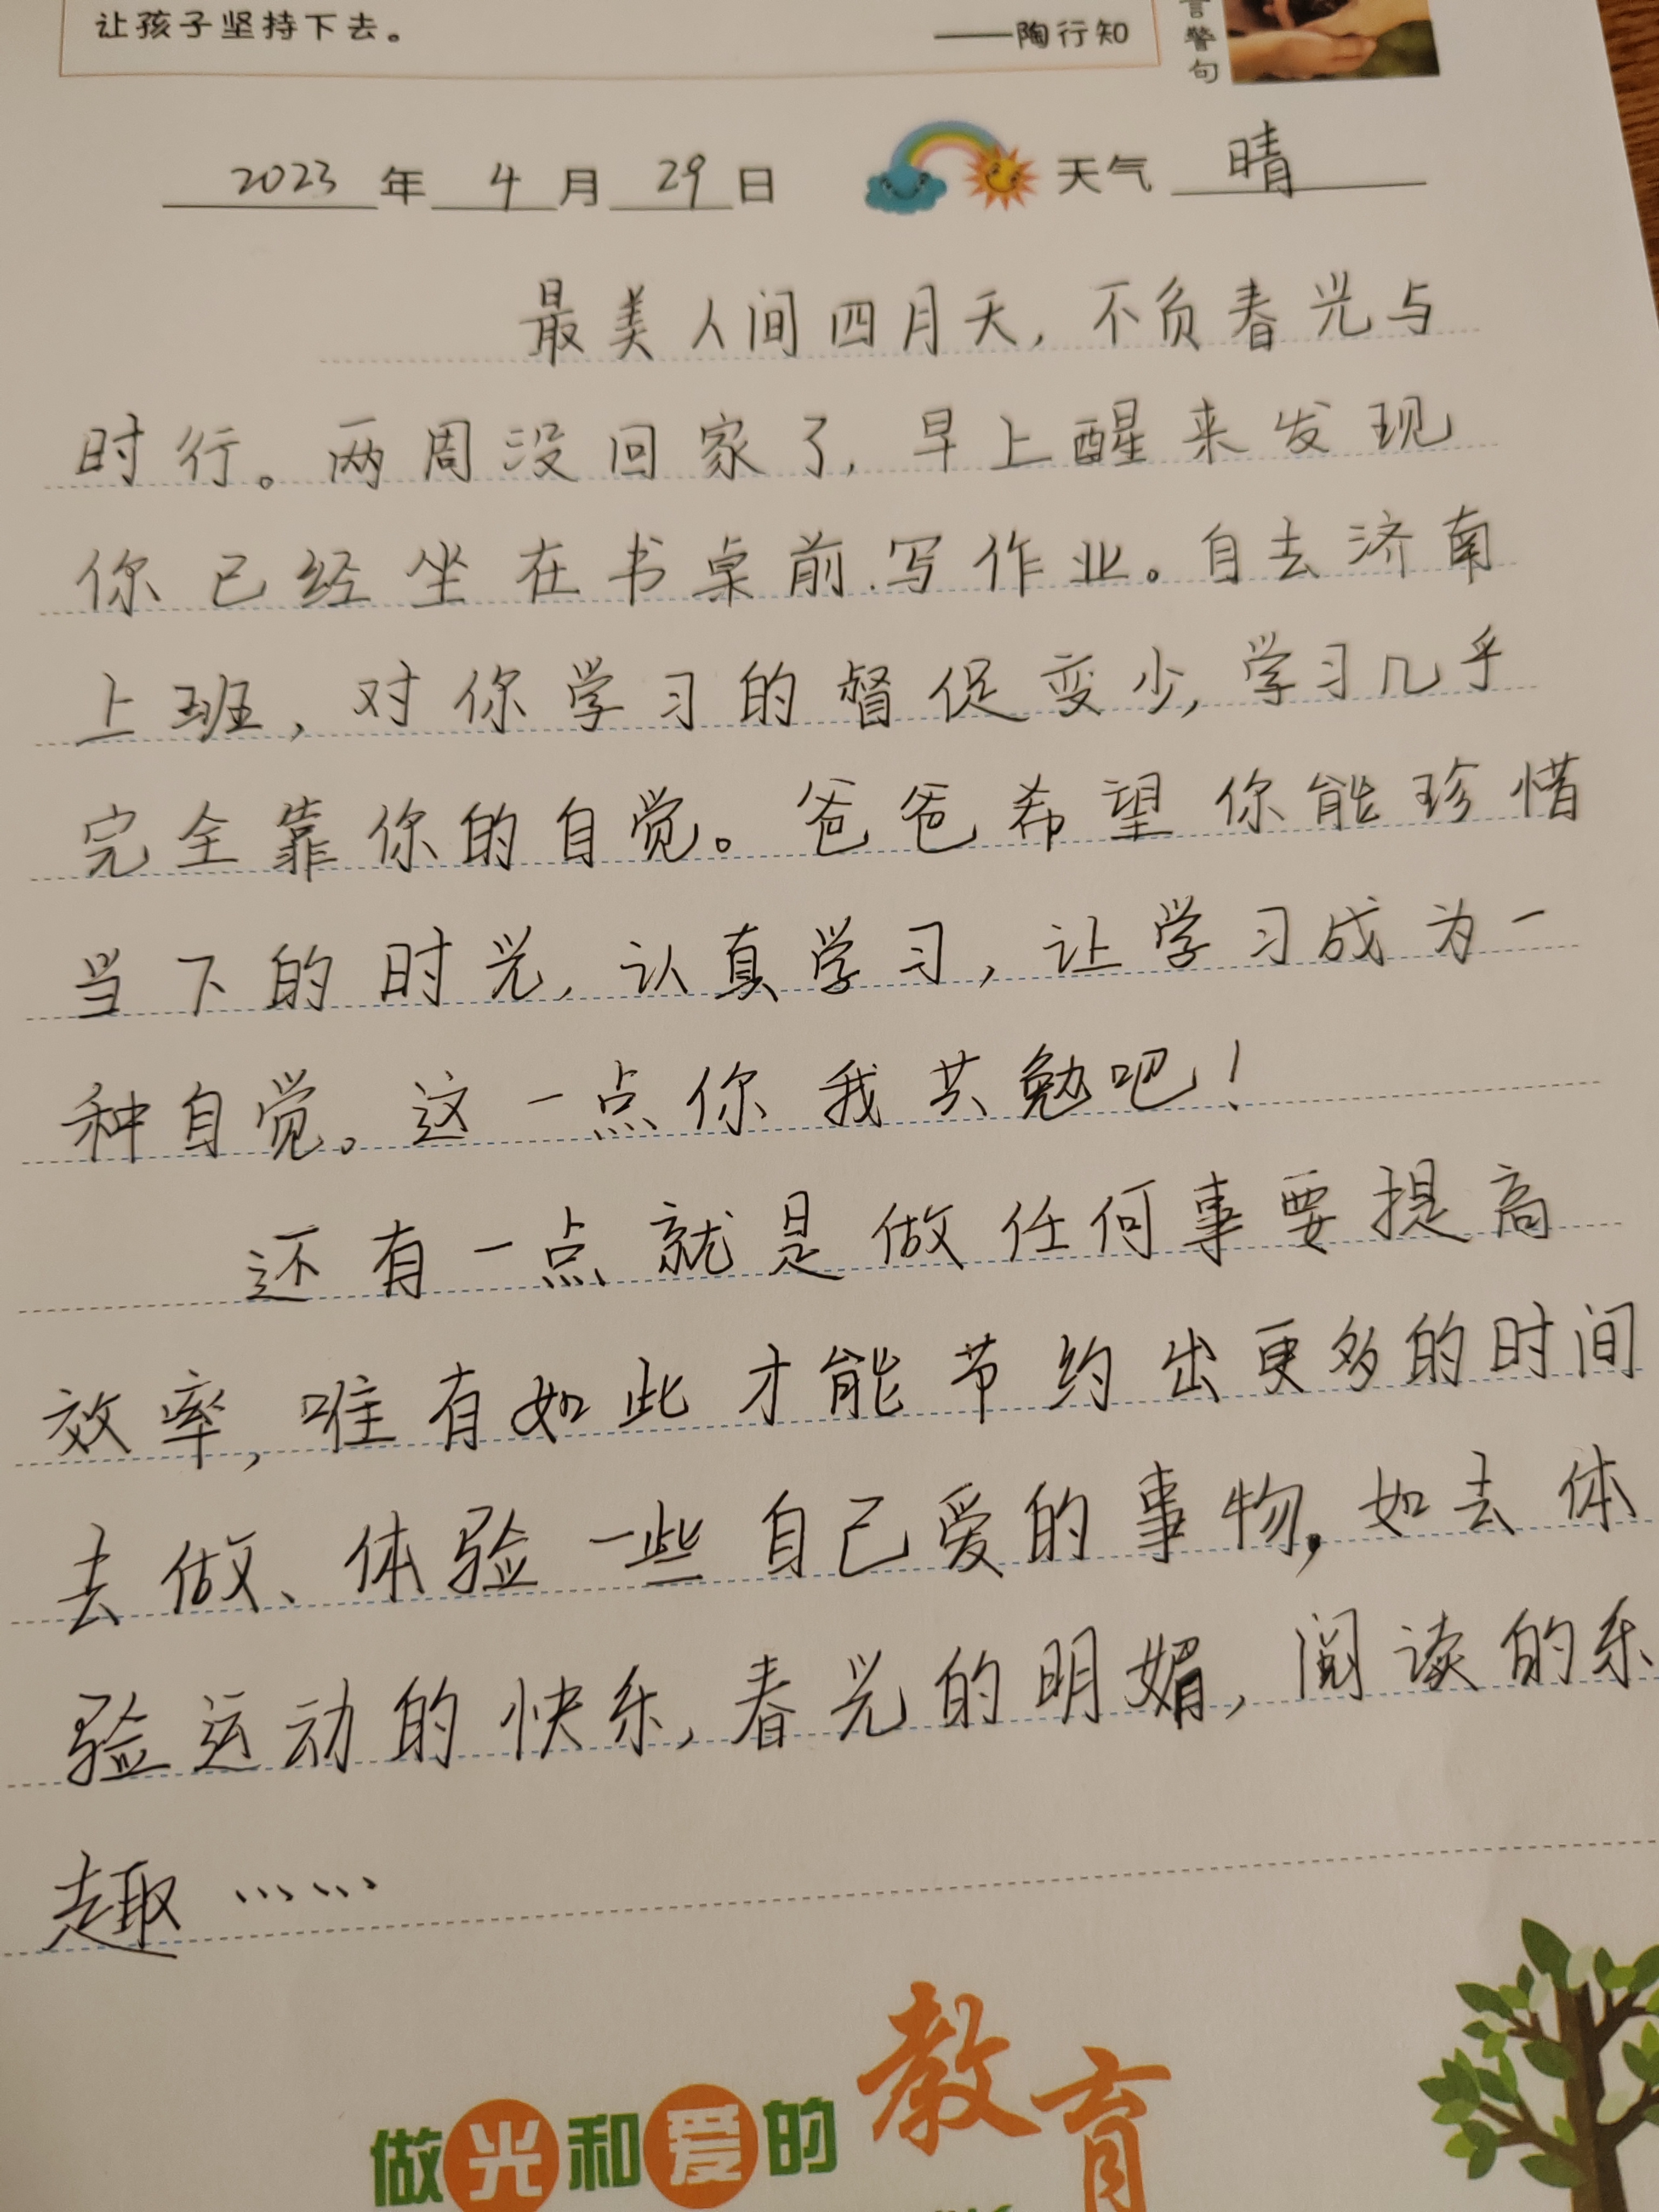 让孩子坚持下去。
——陶行知
警句
2023年4月29日 天气 晴
最美人间四月天，不负春光与
时行。两周没回家了，早上醒来发现
你已经坐在书桌前写作业。自去济南
上班，对你学习的督促变少，学习几乎
完全靠你的自觉。爸爸希望你能珍惜
当下的时光，认真学习，让学习成为一
种自觉。这一点你我共勉吧！
还有一点就是做任何事要提高
效率，唯有如此才能节约出更多的时间
去做、体验一些自己爱的事物，如去体
验运动的快乐，春光的明媚，阅读的乐
趣……
做光和爱的教育